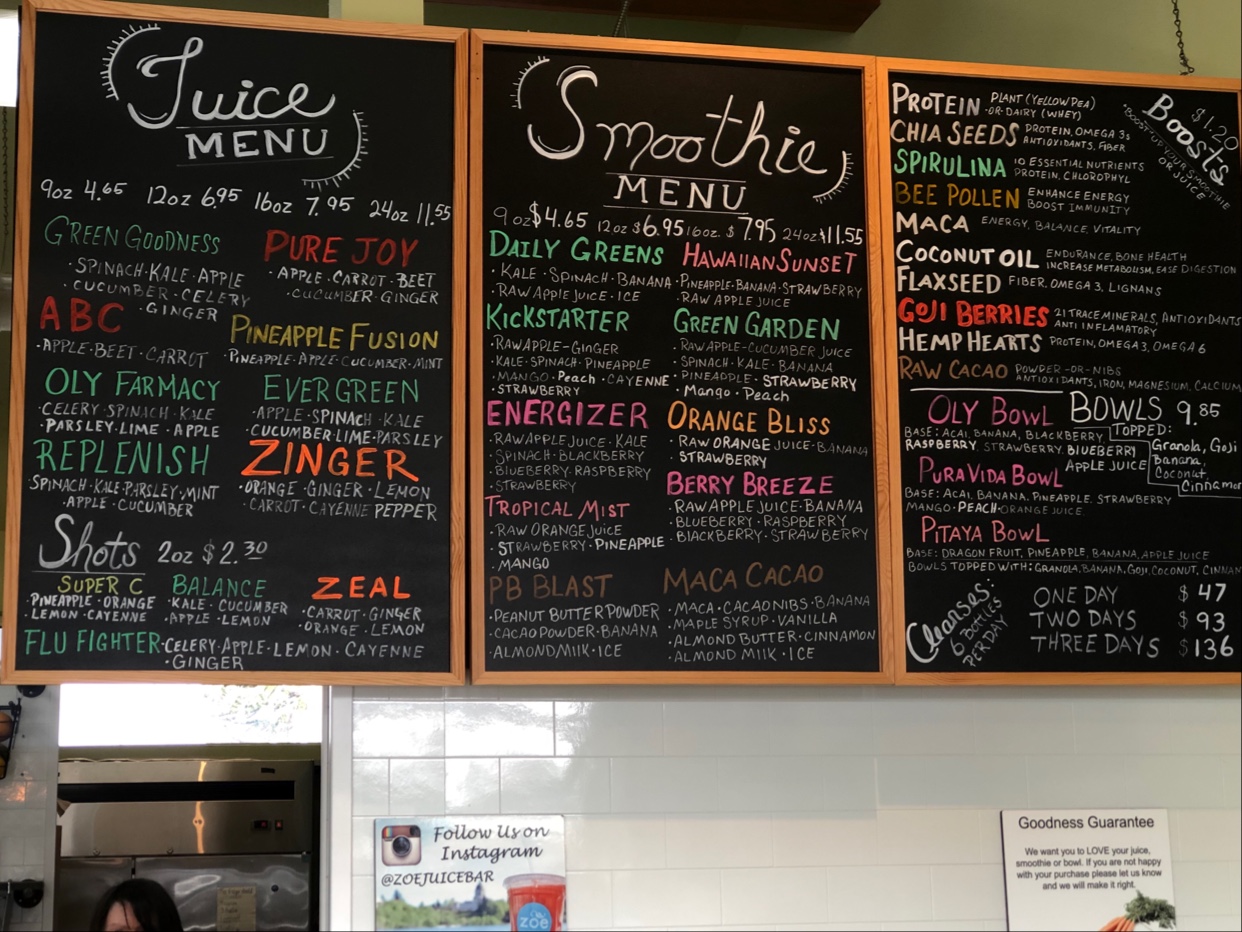 Juice
MENU
9oz 4.65 12oz 6.95 16oz 7.95 24oz 11.55
GREEN GOODNESS
· SPINACH · KALE · APPLE
· CUCUMBER · CELERY
· GINGER
PURE JOY
· APPLE · CARROT · BEET
· CUCUMBER · GINGER
ABC
· APPLE · BEET · CARROT
PINEAPPLE FUSION
· PINEAPPLE · APPLE · CUCUMBER · MINT
OLY FARMACY
· CELERY · SPINACH · KALE
· PARSLEY · LIME · APPLE
EVERGREEN
· APPLE · SPINACH · KALE
· CUCUMBER · LIME · PARSLEY
REPLENISH
· SPINACH · KALE · PARSLEY · MINT
· APPLE · CUCUMBER
ZINGER
· ORANGE · GINGER · LEMON
· CARROT · CAYENNE PEPPER
Shots 2oz $2.30
SUPER C
· PINEAPPLE · ORANGE
· LEMON · CAYENNE
BALANCE
· KALE · CUCUMBER
· APPLE · LEMON
ZEAL
· CARROT · GINGER
· ORANGE · LEMON
FLU FIGHTER · CELERY · APPLE · LEMON · CAYENNE
· GINGER
Smoothie
MENU
9 oz $4.65 12oz $6.95 16oz. $7.95 24oz $11.55
DAILY GREENS
· KALE · SPINACH · BANANA
· RAW APPLE JUICE · ICE
HAWAIIAN SUNSET
· PINEAPPLE · BANANA · STRAWBERRY
· RAW APPLE JUICE
KICKSTARTER
· RAW APPLE-GINGER
· KALE · SPINACH · PINEAPPLE
· MANGO · Peach · CAYENNE
· STRAWBERRY
GREEN GARDEN
· RAW APPLE-CUCUMBER JUICE
· SPINACH · KALE · BANANA
· PINEAPPLE · STRAWBERRY
· Mango · Peach
ENERGIZER
· RAW APPLE JUICE · KALE
· SPINACH · BLACKBERRY
· BLUEBERRY · RASPBERRY
· STRAWBERRY
ORANGE BLISS
· RAW ORANGE JUICE · BANANA
· STRAWBERRY
TROPICAL MIST
· RAW ORANGE JUICE
· STRAWBERRY · PINEAPPLE
· MANGO
BERRY BREEZE
· RAW APPLE JUICE · BANANA
· BLUEBERRY · RASPBERRY
· BLACKBERRY · STRAWBERRY
PB BLAST
· PEANUT BUTTER POWDER
· CACAO POWDER · BANANA
· ALMOND MILK · ICE
MACA CACAO
· MACA · CACAO NIBS · BANANA
· MAPLE SYRUP · VANILLA
· ALMOND BUTTER · CINNAMON
· ALMOND MILK · ICE
Boosts
$1.20
"BOOST" UP YOUR SMOOTHIE
OR JUICE
PROTEIN PLANT (YELLOW PEA)
-OR- DAIRY (WHEY)
CHIA SEEDS PROTEIN, OMEGA 3s
ANTIOXIDANTS, FIBER
SPIRULINA 10 ESSENTIAL NUTRIENTS
PROTEIN, CHLOROPHYL
BEE POLLEN ENHANCE ENERGY
BOOST IMMUNITY
MACA ENERGY, BALANCE, VITALITY
COCONUT OIL ENDURANCE, BONE HEALTH
INCREASE METABOLISM, EASE DIGESTION
FLAXSEED FIBER, OMEGA 3, LIGNANS
GOJI BERRIES 21 TRACE MINERALS, ANTIOXIDANTS
ANTI INFLAMATORY
HEMP HEARTS PROTEIN, OMEGA 3, OMEGA 6
RAW CACAO POWDER -OR- NIBS
ANTIOXIDANTS, IRON, MAGNESIUM, CALCIUM
BOWLS 9.85
OLY BOWL
BASE: ACAI, BANANA, BLACKBERRY
RASPBERRY, STRAWBERRY, BLUEBERRY
APPLE JUICE
TOPPED:
Granola, Goji
Banana,
Coconut,
Cinnamon
PURA VIDA BOWL
BASE: ACAI, BANANA, PINEAPPLE, STRAWBERRY
MANGO · PEACH · ORANGE JUICE
PITAYA BOWL
BASE: DRAGON FRUIT, PINEAPPLE, BANANA, APPLE JUICE
BOWLS TOPPED WITH: GRANOLA, BANANA, GOJI, COCONUT, CINNAM
Cleanses:
6 BOTTLES
PER DAY
ONE DAY $47
TWO DAYS $93
THREE DAYS $136
Follow Us on
Instagram
@ZOEJUICEBAR
zoe
Goodness Guarantee
We want you to LOVE your juice,
smoothie or bowl. If you are not happy
with your purchase please let us know
and we will make it right.